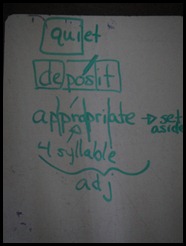 quiet
deposit
appropriate → set aside
4 syllable
adj